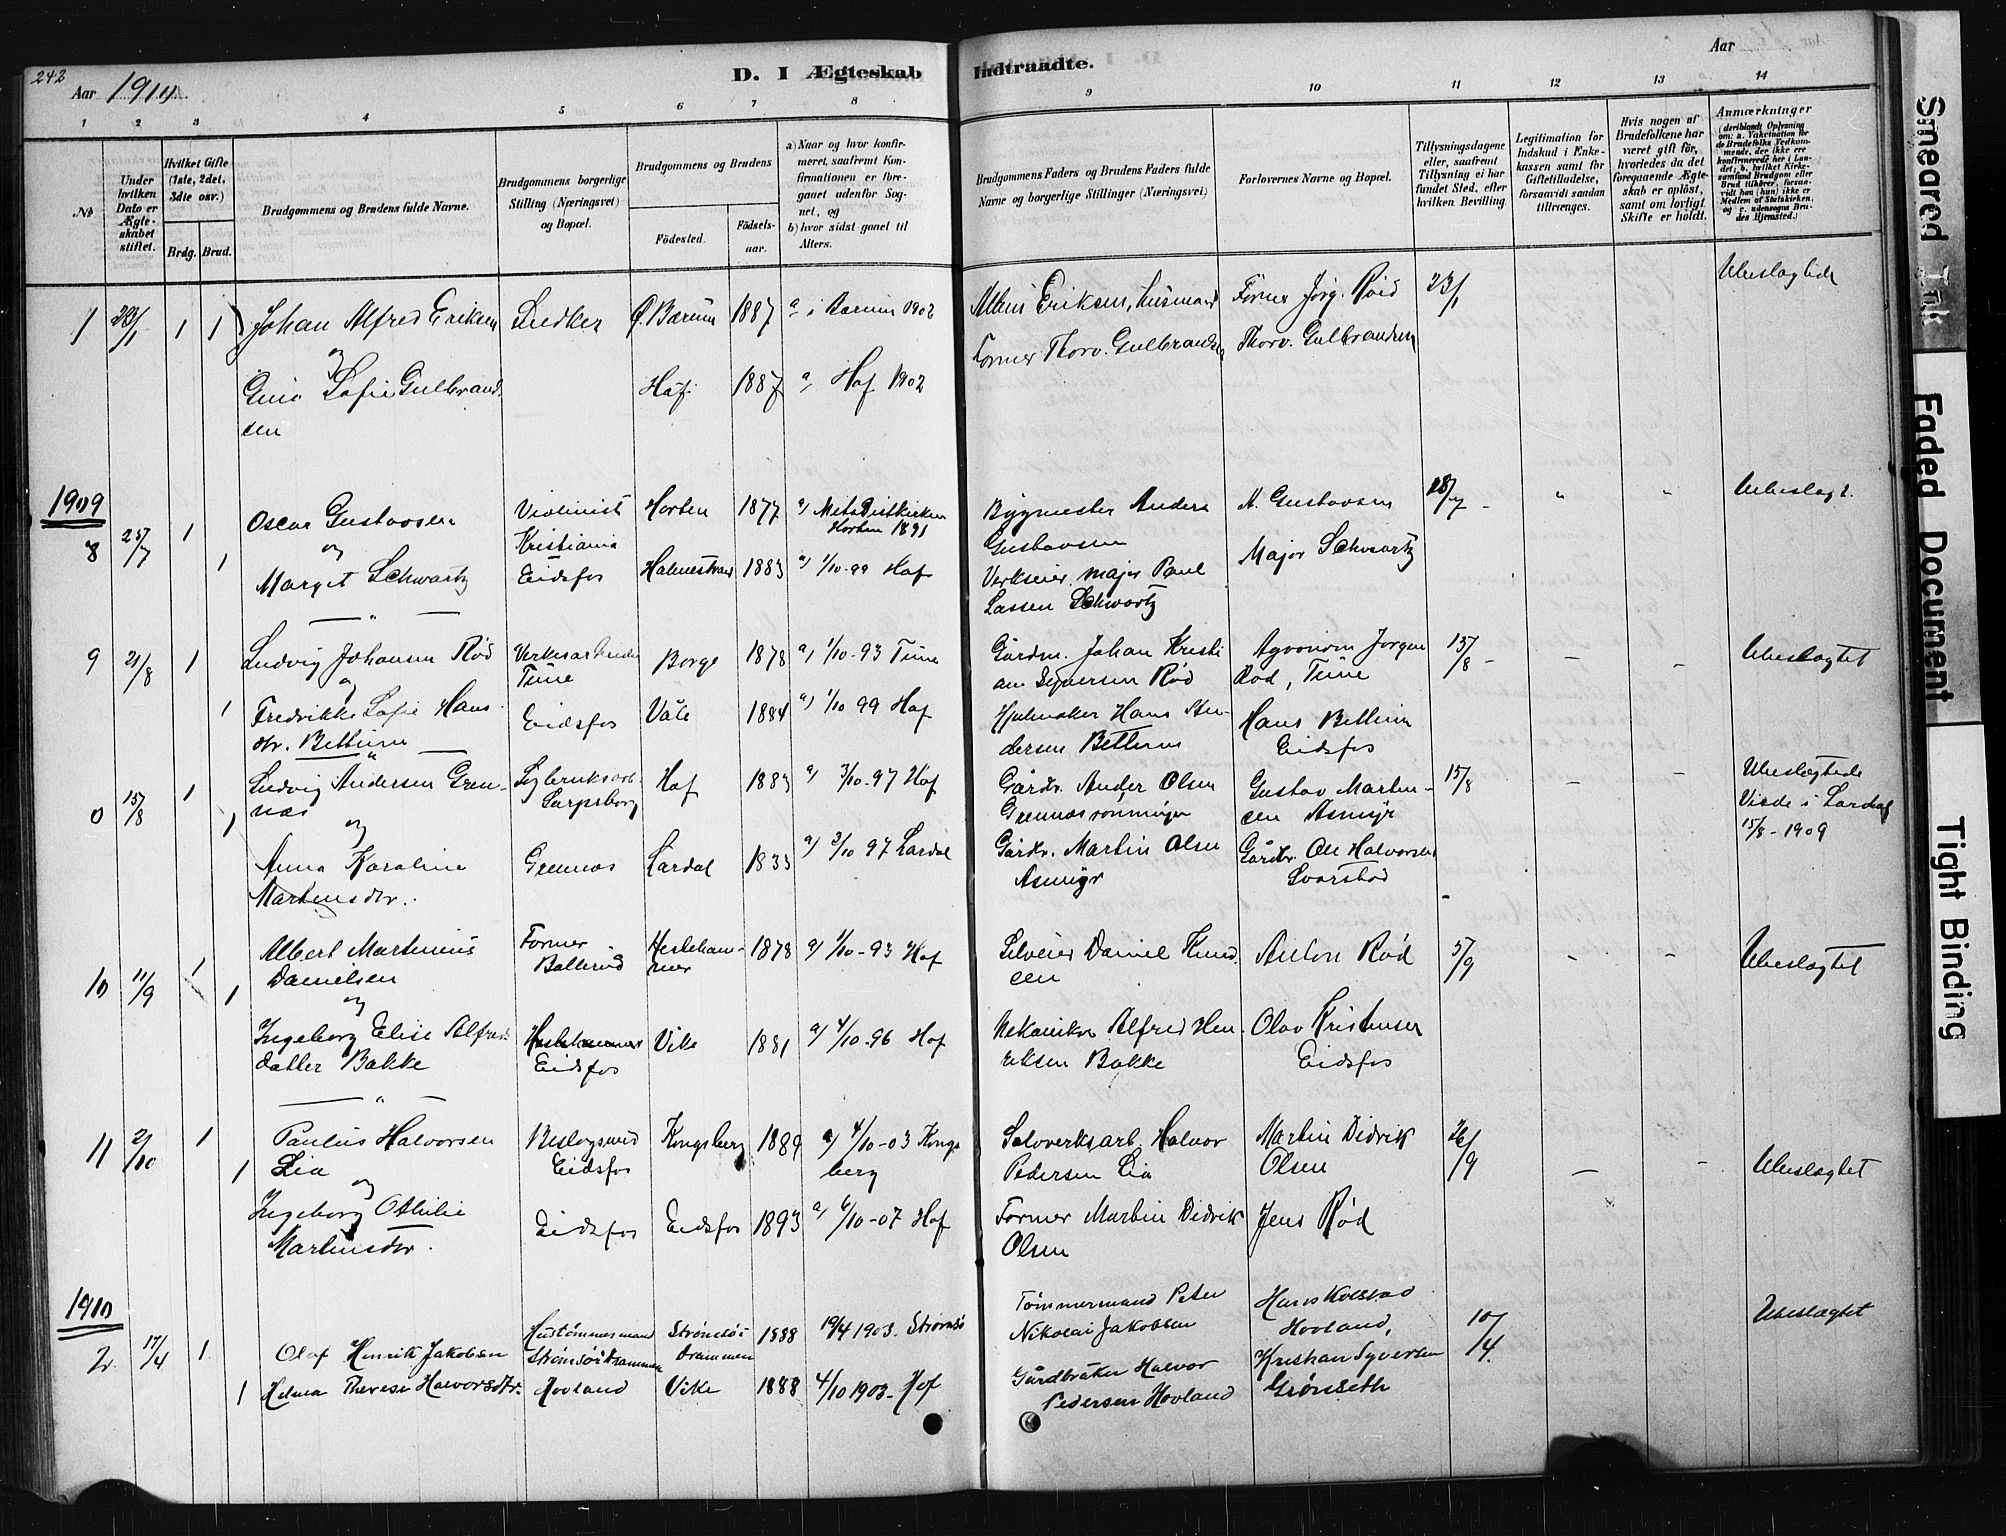 242
Aar 1910
D. I Ægteskab
Indtraadte.
Aar
1 2 3 4 5 6 7 8
9 10 11 12 13 14
No
Under hvilken Dato er Ægteskabet stiftet.
Hvilket Gifte (1ste, 2det, 3die osv.)
Brdg. Brud.
Brudgommens og Brudens fulde Navne.
Brudgommens borgerlige Stilling (Næringsvei) og Bopæl.
Brudgommens og Brudens
Fødested. Fødselsaar.
a) Naar og hvor konfirmeret, saafremt Konfirmationen er foregaaet udenfor Sognet, og
b) hvor sidst gaaet til Alters.
Brudgommens Faders og Brudens Faders fulde Navne og borgerlige Stillinger (Næringsvei)
Forlovernes Navne og Bopæl.
Tillysningsdagene eller, saafremt Tillysning ei har fundet Sted, efter hvilken Bevilling.
Legitimation for Indskud i Enkekassen samt for Giftetilladelse, forsaavidt saadan tiltrænges.
Hvis nogen af Brudefolkene har været gift før, hvorledes da det foregaaende Ægteskab er opløst, samt om lovligt Skifte er holdt.
Anmærkninger
1 1 1 Johan Alfred Eriksen Snedker Ø. Bærum 1887 a i Bærum 1902 Eriksen, husmand Former Jørg. Røid 23/1 Ubeslægtede
og
Former Thorv. Gulbrandsen Thorv. Gulbrandsen
Sofie Gulbrand Hof 1887 a) Hof 1902
sen
1909
8 25/7 1 Oscar Gustavsen Violinist Horten 1877 a) Metodistkirken A. Gustavsen 18/7 - " " Ubeslægt.
Horten 1891
Bygmester Anders
Gustavsen
og Kristiania
1 Margit Schwartz Eidsfos Holmestrand 1883 a) 1/10-99 Hof Major Schwartz
Verkseier, major Paul
Lassen Schwartz
9 21/8 1 Ludvig Johansen Rød Verksarbeider Borge 1878 a) 1/10-93 Tune Gårdm. Johan Kristi Agronom Jørgen 15/8 - - - Ubeslægtet
og Tune an Syversen Rød Rød, Tune
1 Fredrikke Sofie Hans Eidsfos Våle 1884 a) 1/10 99 Hof Hjulmaker Hans An- Hans Bettum
dtr. Bettum dersen Bettum Eidsfos
0 15/8 1 Ludvig Andersen Gren- Hof 1883 a) 3/10-97 Hof Gårdbr. Anders Olsen Gustav Marten- 15/8 - - Ubeslægtede
næs Sarpsborg sen Asmyr Viede i Lardal
og 15/8-1909
1 Anna Karoline Grennæs Lardal 1833 a) 3/10 97 Lardal Gårdbr. Martin Olsen Gårdbr. Ole Halvorsen
Martensdtr. Asmyr Svarstad
10 11/9 1 Albert Martinius Former 1878 a) 1/10-93 Hof Daniel Knud Anton Rød 5/9 - - Ubeslægtet
Danielsen sen
og
1 Ingeborg Elise Alfreds Vike 1881 a) 4/10-96 Hof Mekaniker Alfred Hen Olav Kristensen
datter Bakke Eidsfos riksen Bakke Eidsfos
11 2/10 1 Paulus Halvorsen Beslagsmed Kongsberg 1889 a) 4/10-03 Kongs Sølverksarb. Halvor Martin Didrik 26/9 - - Ubeslægtet
1 Lia Eidsfos berg Pedersen Lia Olsen
og
Ingeborg Othilie Eidsfos Eidsfos 1893 a) 6/10-07 Hof Former Martin Didrik Jens Rød
Martinsdtr. Olsen
1910
2. 17/4 1 Olaf Henrik Jakobsen Hustømmermand Strømsø i 1888 19/4 1903. Strømsø Tømmermand Peter Hans Kolstad 10/4. Ubeslægtet
Strømsø i Drammen Drammen Nikolai Jakobsen Hovland,
1 Helma Therese Halvorsdtr. Hovland Vike 1888 4/10 1903. Hof Gårdbruker Halvor Kristian Syversen
Pedersen Hovland Grønseth
Smeared Ink
Faded Document
Tight Binding